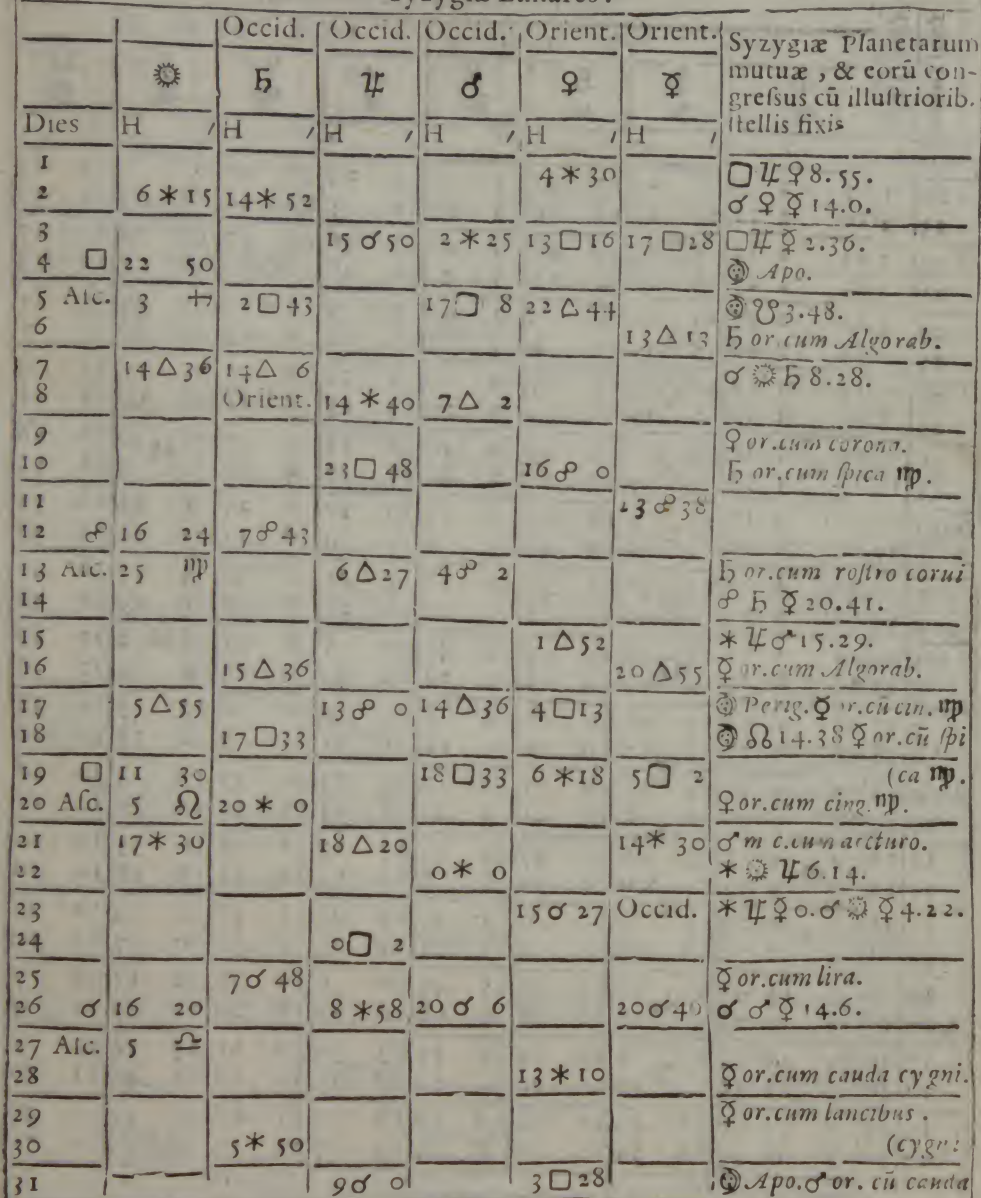 Occid. Occid. Occid. Orient. Orient. Syzygiæ Planetarum
☉ ♄ ♃ ♂ ♀ ☿ mutuæ, & eorū con-
gressus cū illustriorib.
Dies H ′ H ′ H ′ H ′ H ′ H ′ stellis fixis
1 4 ⚹ 30 □ ♃ ♀ 8.55.
2 6 ⚹ 15 14 ⚹ 52 ☌ ♀ ☿ 14.0.
3 15 ☌ 50 2 ⚹ 25 13 □ 16 17 □ 28 □ ♃ ☿ 2.36.
4 □ 22 50 ☽ Apo.
5 Asc. 3 ♐ 2 □ 43 17 □ 8 22 △ 44 ☽ ☋ 3.48.
6 13 △ 13 ♄ or. cum Algorab.
7 14 △ 36 14 △ 6 ☌ ☉ ♄ 8.28.
8 Orient. 14 ⚹ 40 7 △ 2
9 ♀ or. cum corona.
10 23 □ 48 16 ☍ 0 ♄ or. cum spica ♍.
11 23 ☍ 38
12 ☍ 16 24 7 ☍ 43
13 Asc. 25 ♍ 6 △ 27 4 ☍ 2 ♄ or. cum rostro corui
14 ☍ ♄ ☿ 20.41.
15 1 △ 52 ⚹ ♃ ♂ 15.29.
16 15 △ 36 20 △ 55 ☿ or. cum Algorab.
17 5 △ 55 13 ☍ 0 14 △ 36 4 □ 13 ☽ Perig. ☿ or. cū cin. ♍
18 17 □ 33 ☽ ☊ 14.38 ☿ or. cū spi
19 □ 11 30 18 □ 33 6 ⚹ 18 5 □ 2 (ca ♍.
20 Asc. 5 ♌ 20 ⚹ 0 ♀ or. cum cing. ♍.
21 17 ⚹ 30 18 △ 20 14 ⚹ 30 ♂ m c. cum arcturo.
22 0 ⚹ 0 ⚹ ☉ ♃ 6.14.
23 15 ☌ 27 Occid. ⚹ ♃ ☿ 0. ☌ ☉ ☿ 4.22.
24 0 □ 2
25 7 ☌ 48 ☿ or. cum lira.
26 ☌ 16 20 8 ⚹ 58 20 ☌ 6 ☌ ♂ ☿ 14.6.
27 Asc. 5 ♎
28 13 ⚹ 10 ☿ or. cum cauda cygni.
29 ☿ or. cum lancibus.
30 5 ⚹ 50
31 9 ☌ 0 3 □ 28 ☽ Apo. ♂ or. cū cauda